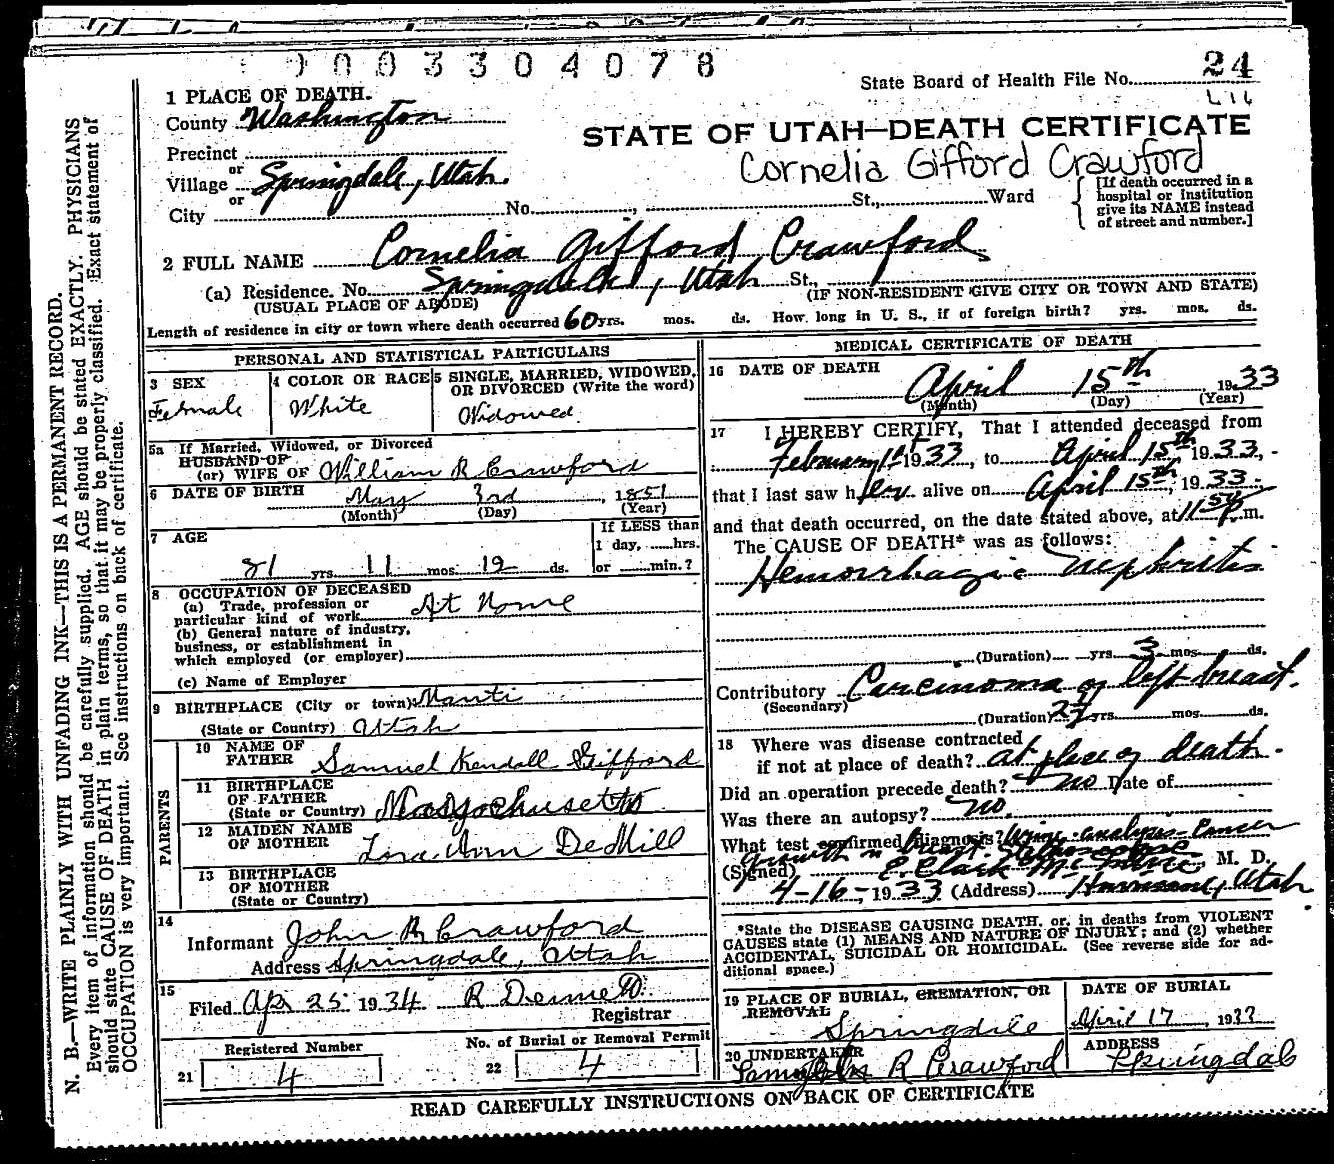 900330407 8
State Board of Health File No. 24
1 PLACE OF DEATH.
County Washington
STATE OF UTAH—DEATH CERTIFICATE
Precinct
Cornelia Gifford Crawford
or
Village Springdale, Utah.
or
City No. St., Ward
[If death occurred in a hospital or institution give its NAME instead of street and number.]
2 FULL NAME Cornelia Gifford Crawford
(a) Residence. No. Springdale, Utah St.,
(USUAL PLACE OF ABODE) (IF NON-RESIDENT GIVE CITY OR TOWN AND STATE)
Length of residence in city or town where death occurred 60 yrs. mos. ds. How long in U. S., if of foreign birth? yrs. mos. ds.
PERSONAL AND STATISTICAL PARTICULARS
3 SEX
Female
4 COLOR OR RACE
White
5 SINGLE, MARRIED, WIDOWED, OR DIVORCED (Write the word)
Widowed
5a If Married, Widowed, or Divorced
HUSBAND OF
(or) WIFE OF William R Crawford
6 DATE OF BIRTH May 3rd, 1851
(Month) (Day) (Year)
7 AGE
If LESS than
1 day, hrs.
81 yrs. 11 mos. 12 ds. or min.?
8 OCCUPATION OF DECEASED
(a) Trade, profession or
particular kind of work At Home
(b) General nature of industry,
business, or establishment in
which employed (or employer)
(c) Name of Employer
9 BIRTHPLACE (City or town) Manti
(State or Country) Utah
PARENTS
10 NAME OF
FATHER Samuel Kendall Gifford
11 BIRTHPLACE
OF FATHER
(State or Country) Massachusetts
12 MAIDEN NAME
OF MOTHER Lora Ann DeMill
13 BIRTHPLACE
OF MOTHER
(State or Country)
14
Informant John R Crawford
Address Springdale, Utah
15
Filed Apr 25 1934
Registrar
Registered Number
21 4
No. of Burial or Removal Permit
22 4
MEDICAL CERTIFICATE OF DEATH
16 DATE OF DEATH
April 15th, 1933
(Month) (Day) (Year)
17 I HEREBY CERTIFY, That I attended deceased from
February 1st 1933, to April 15th 1933,
that I last saw her alive on April 15th, 1933
and that death occurred, on the date stated above, at 11 p.m.
The CAUSE OF DEATH* was as follows:
Hemorrhagic Nephritis
(Duration) yrs. 3 mos. ds.
Contributory Carcinoma of left breast.
(Secondary)
(Duration) yrs. mos. ds.
18 Where was disease contracted
if not at place of death? at place of death.
Did an operation precede death? no Date of
Was there an autopsy? no.
What test confirmed diagnosis? Urine analysis - Cancer
growth in breast.
(Signed) E. Clark M. D.
4-16-, 1933 (Address) Hurricane, Utah
*State the DISEASE CAUSING DEATH, or, in deaths from VIOLENT
CAUSES state (1) MEANS AND NATURE OF INJURY; and (2) whether
ACCIDENTAL, SUICIDAL OR HOMICIDAL. (See reverse side for ad-
ditional space.)
19 PLACE OF BURIAL, CREMATION, OR
REMOVAL
Springdale
DATE OF BURIAL
April 17, 1933
20 UNDERTAKER
R Crawford
ADDRESS
Springdale
READ CAREFULLY INSTRUCTIONS ON BACK OF CERTIFICATE
N. B.—WRITE PLAINLY WITH UNFADING INK—THIS IS A PERMANENT RECORD.
Every item of information should be carefully supplied. AGE should be stated EXACTLY. PHYSICIANS
should state CAUSE OF DEATH in plain terms, so that it may be properly classified. Exact statement of
OCCUPATION is very important. See instructions on back of certificate.